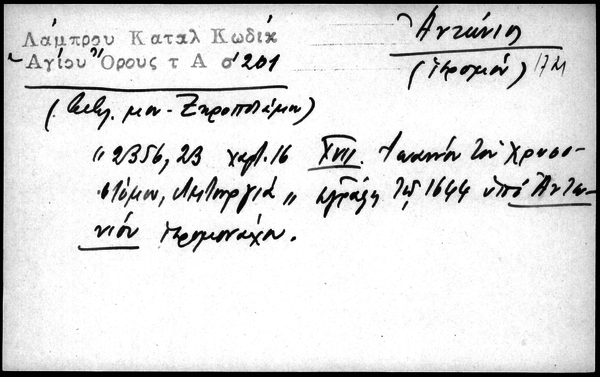 Λάμπρου Καταλ Κωδικ
Αγίου Όρους τ Α σ 201
Αντώνιος
(Ιερομόν) 17
( μον - Ξηροποτάμου)
"2356, 23 χαρτ. 16 XVII. Ιωαννου του Χρυσο-
στόμου, Λειτουργία „ εγράφη τω 1644 υπό Αντω-
νίου Ιερομονάχου.